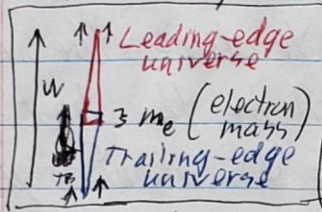 Leading-edge
universe
W
} me (electron
mass)
Trailing-edge
universe